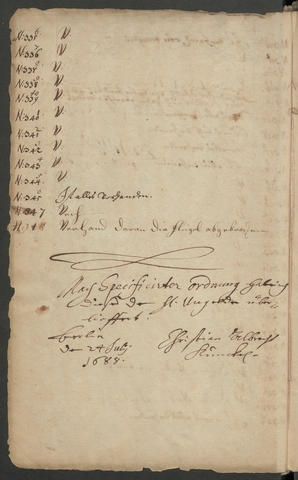 N: 335 V.
N: 336 V.
N: 337 V.
N: 338 V.
N: 339 V.
N: 340 V.
N: 341 V.
N: 342 V.
N: 343 V.
N: 344 V.
N: 345 Ist alles vorhanden.
N: 347
Vorhand daran die Flügel abgebrochen
Nach Specificirter ordnung habe ich
dieses dem H. Ungelder über-
lieffert.
Berlin
den 24 July
1688.
Christian Albrecht
Kunckel